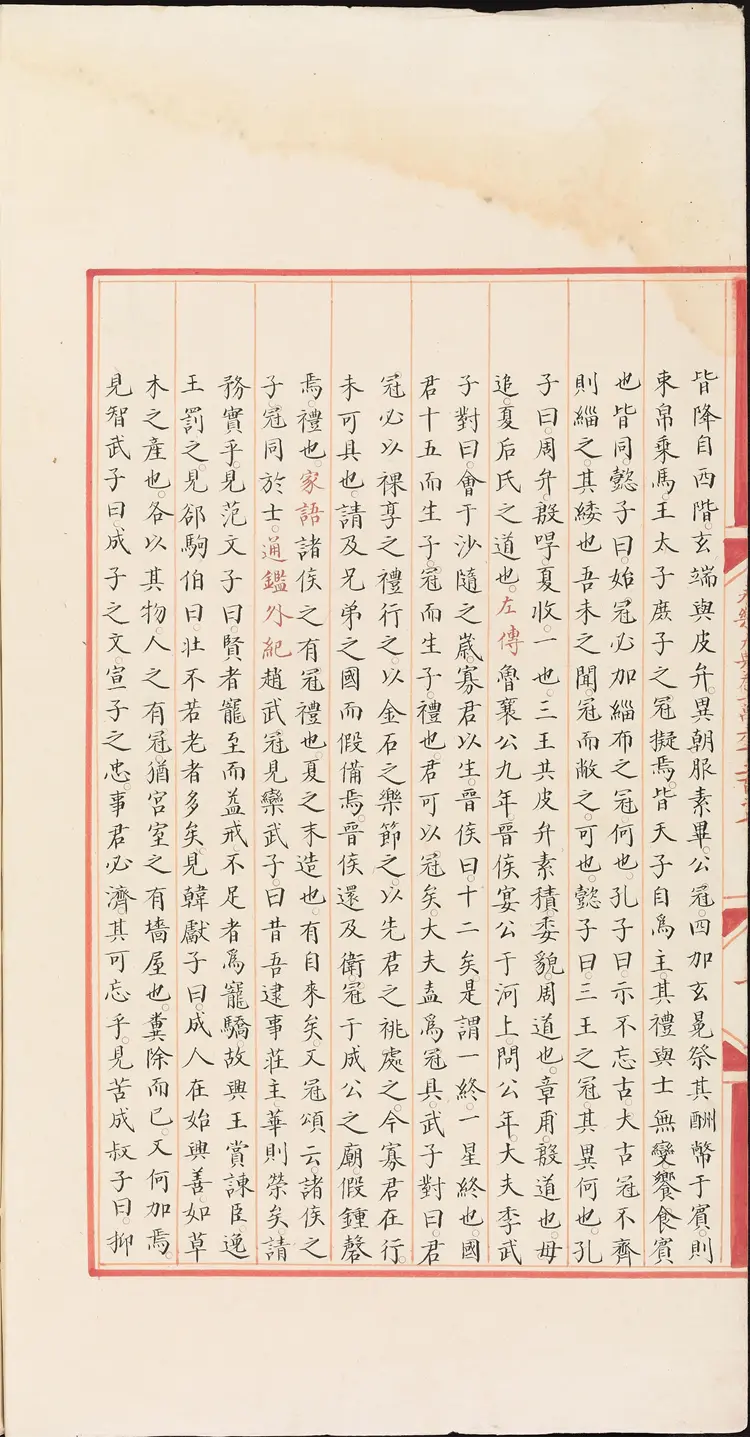 皆降自西階。玄端與皮弁。異朝服素畢。公冠。四加玄冕祭。其酬幣于賓。則
束帛乗馬。王太子庶子之冠擬焉。皆天子自爲主。其禮與士無變。饗食賓
也皆同。懿子曰。始冠必加緇布之冠。何也。孔子曰。示不忘古。大古冠不齊
則緇之。其緌也吾未之聞。冠而敝之。可也。懿子曰。三王之冠。其異何也。孔
子曰。周弁。殷哻。夏收。一也。三王共皮弁素積。委貌周道也。章甫。殷道也。毋
追。夏后氏之道也。左傳魯襄公九年。晉侯宴公于河上。問公年。大夫季武
子對曰。會于沙隨之歲。寡君以生。晉侯曰。十二矣。是謂一終。一星終也。國
君十五而生子。冠而生子。禮也。君可以冠矣。大夫盍爲冠具。武子對曰。君
冠必以祼享之禮行之。以金石之樂節之。以先君之祧處之。今寡君在行。
未可具也。請及兄弟之國而假備焉。晉侯還及衛。冠于成公之廟。假鍾磬
焉。禮也。家語諸侯之有冠禮也。夏之末造也。有自來矣。又冠頌云。諸侯之
子。冠同於士。通鑑外紀趙武冠。見欒武子。曰昔吾逮事莊主。華則榮矣。請
務實乎。見范文子曰。賢者寵至而益戒。不足者爲寵驕。故興王賞諫臣。逸
王罰之。見郤駒伯曰。壯不若老者多矣。見韓獻子曰。成人在始與善。如草
木之產也。各以其物。人之有冠。猶宮室之有墻屋也。糞除而已。又何加焉。
見智武子曰。成子之文。宣子之忠。事君必濟。其可忘乎。見苦成叔子曰。抑